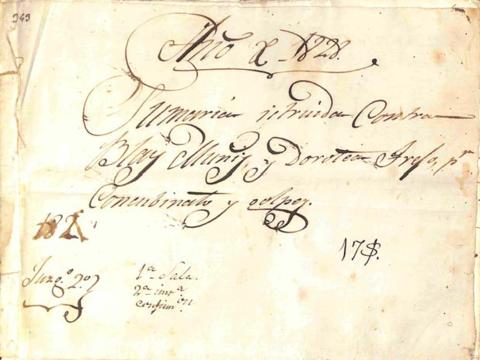 343
Año de 1828.
Sumaria istruida Contra
Blas Muñiz y Dorotea, pr
Concubinato y golpes.
182
17$.
Juzgo. 2o.
1a. Sala.
2a. inst a
confirmon